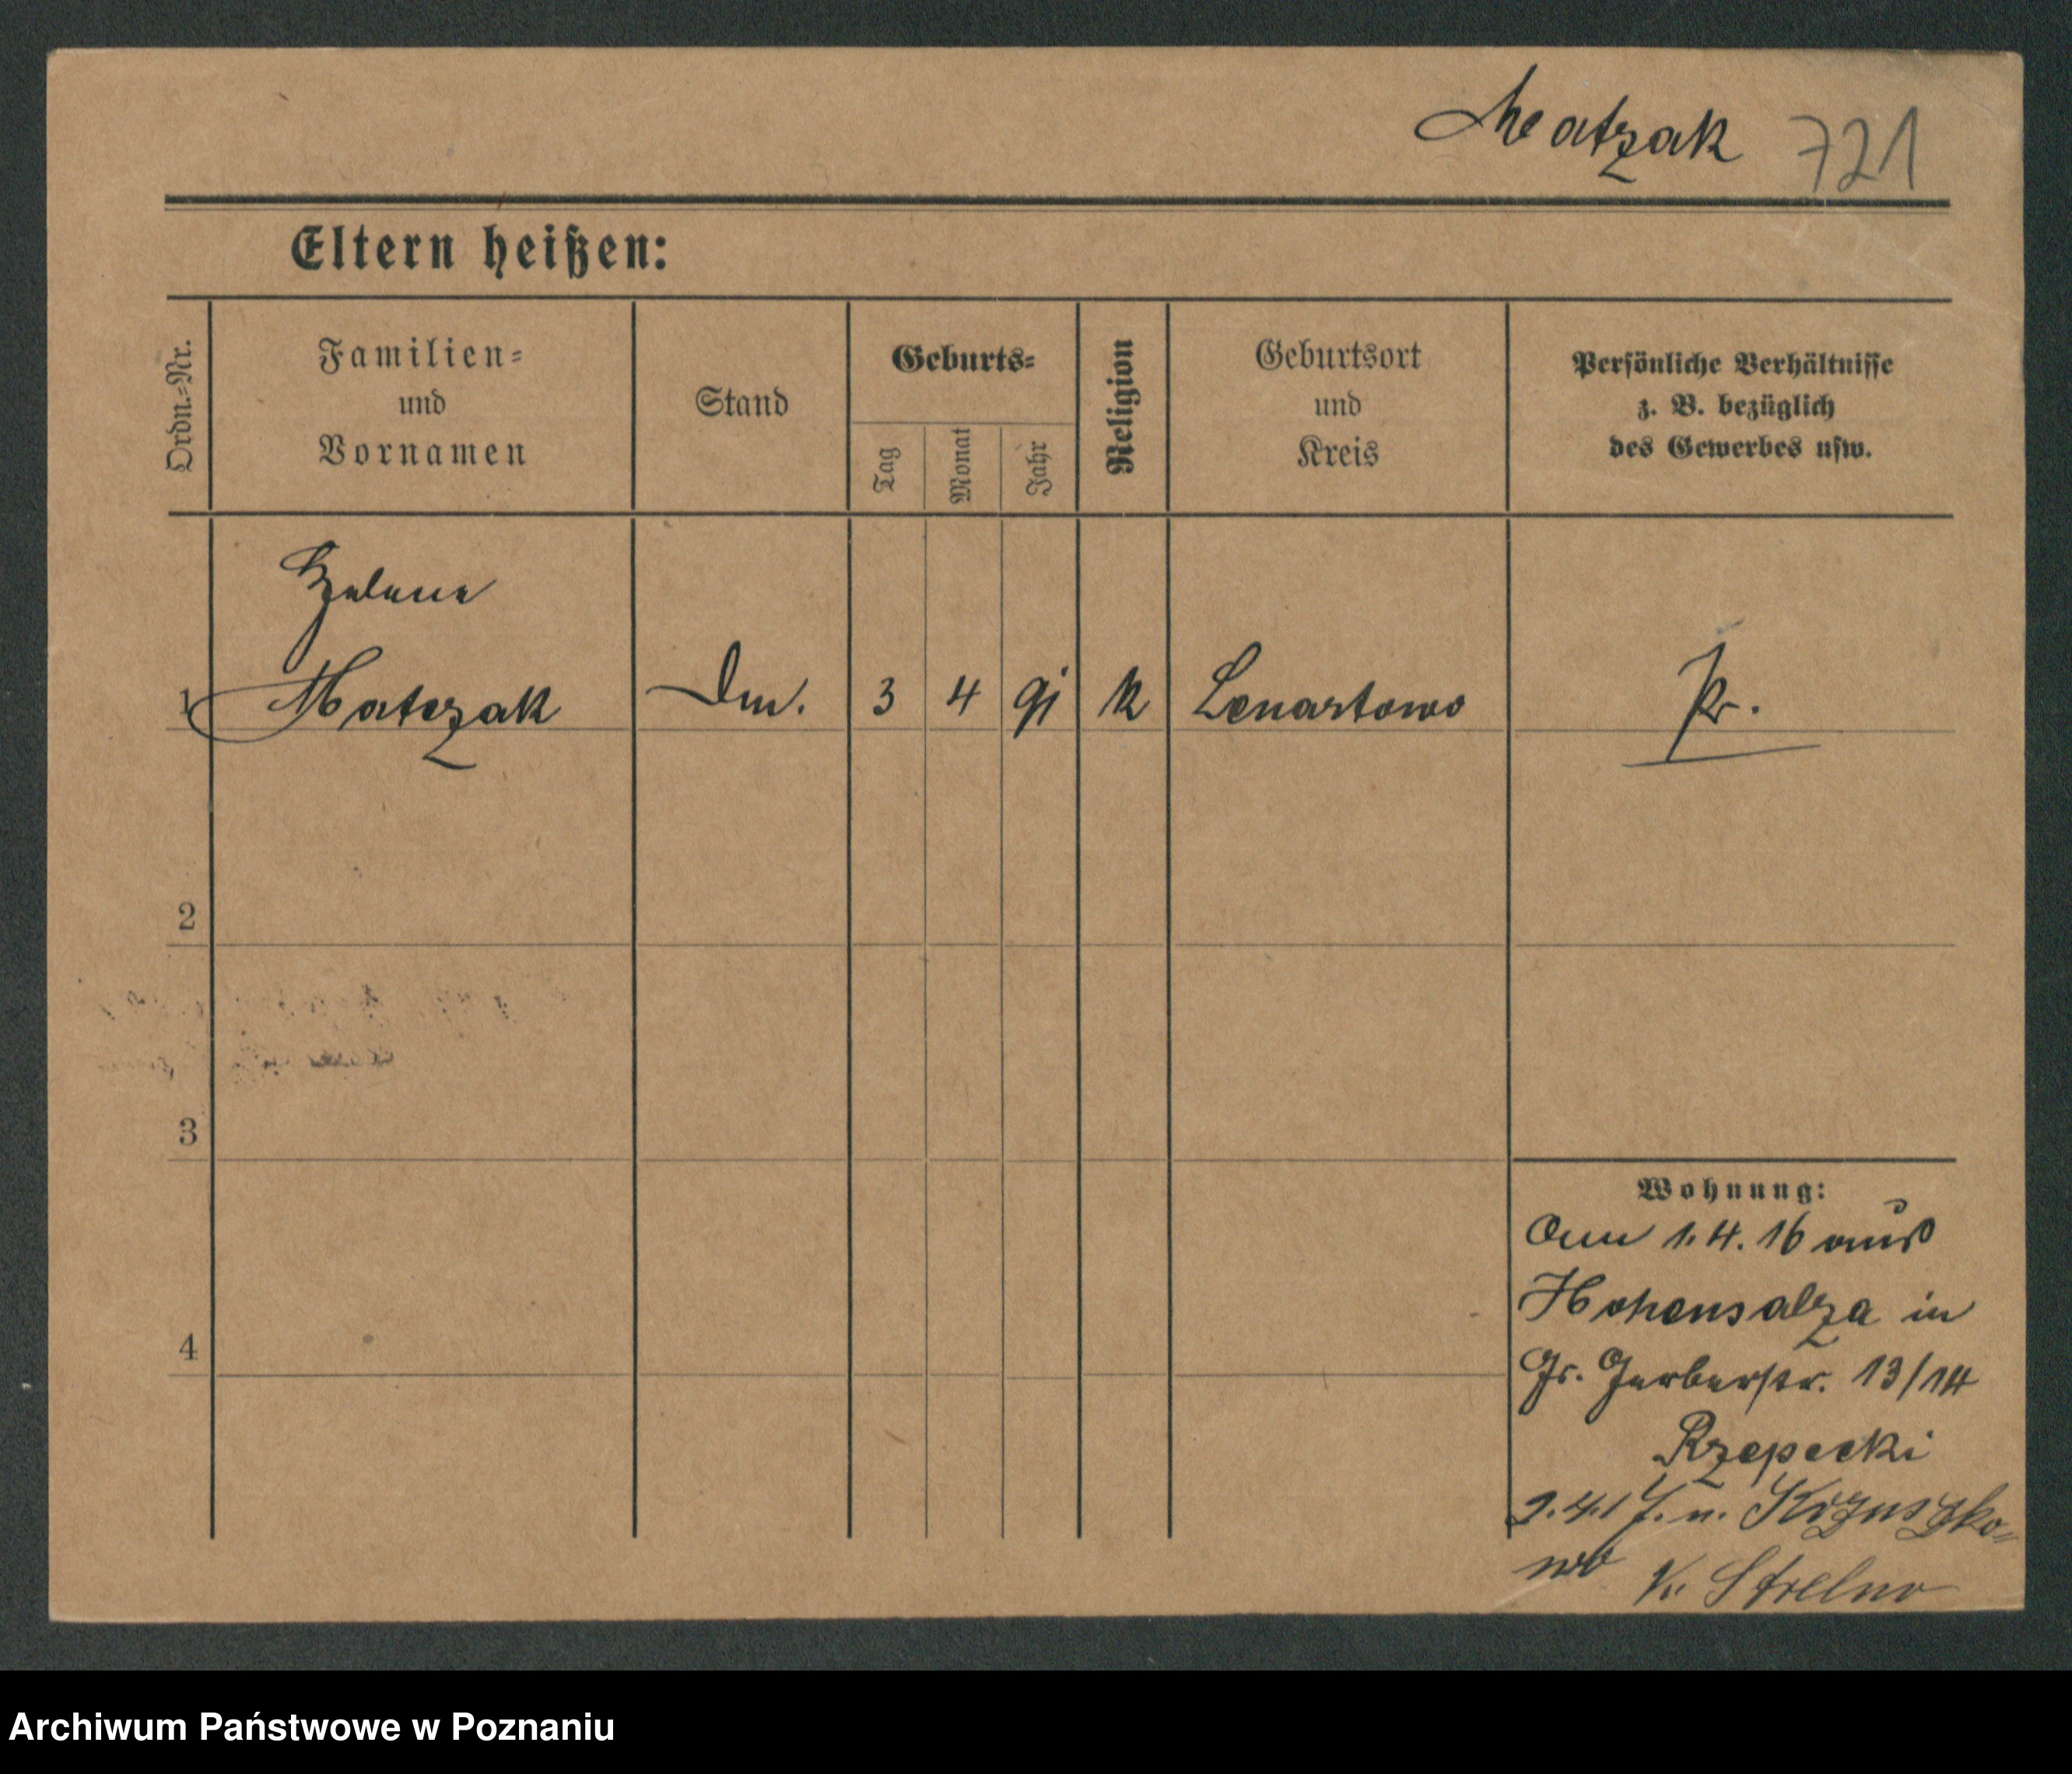 Matzak 721
Eltern heißen:
Ordn.=Nr.
Familien=
und
Vornamen
Stand
Geburts=
Tag
Monat
Jahr
Religion
Geburtsort
und
Kreis
Persönliche Verhältnisse
z. B. bezüglich
des Gewerbes usw.
Helene
1 Matczak 3 4 91 k Lenartowo Pr.
2
3
4
Wohnung:
1.4.16 aus
Hohensalza in
Gr. Gerberstr. 13/14
Rzepecki
n. Kozuszko=
wo K. Strelno
Archiwum Państwowe w Poznaniu